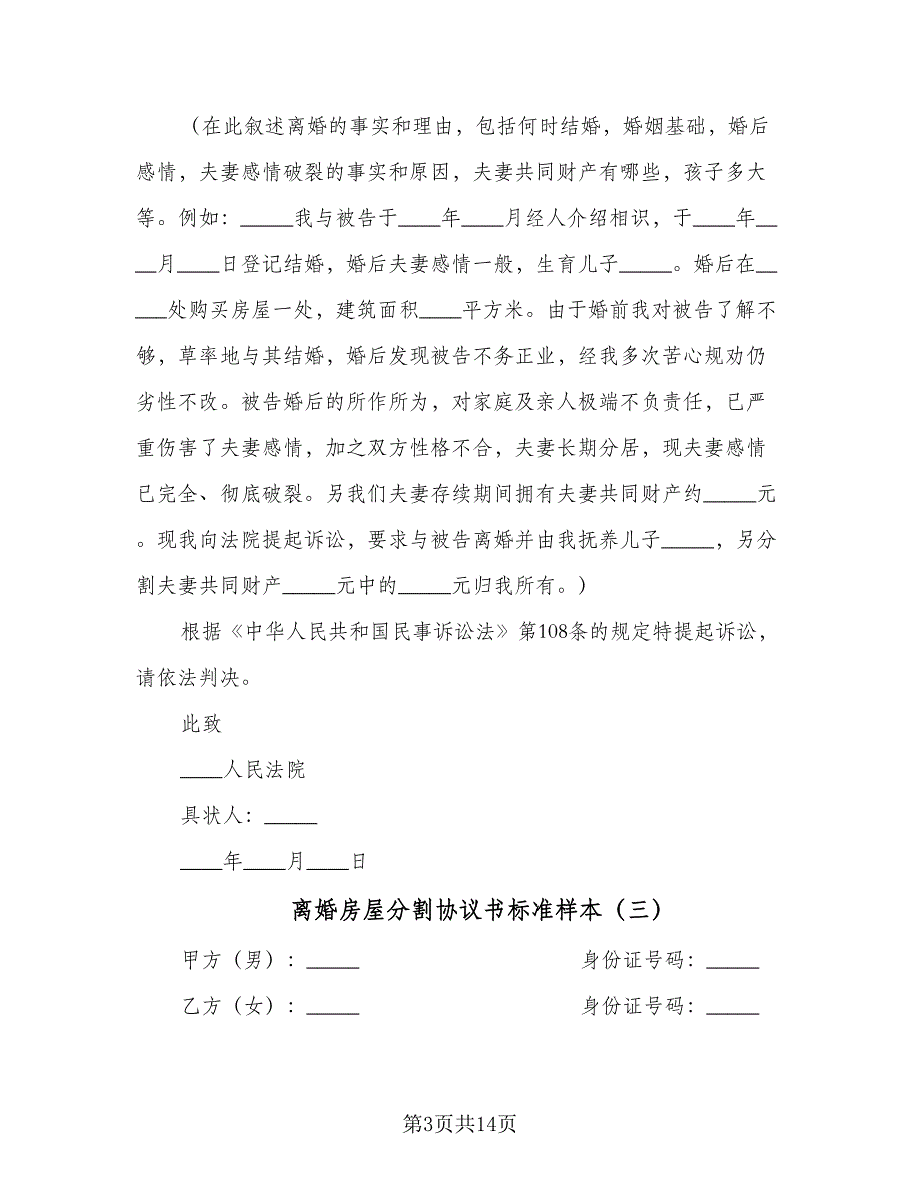 （在此叙述离婚的事实和理由，包括何时结婚，婚姻基础，婚后
感情，夫妻感情破裂的事实和原因，夫妻共同财产有哪些，孩子多大
等。例如：_____我与被告于____年____月经人介绍相识，于____年__
__月____日登记结婚，婚后夫妻感情一般，生育儿子_____。婚后在__
___处购买房屋一处，建筑面积____平方米。由于婚前我对被告了解不
够，草率地与其结婚，婚后发现被告不务正业，经我多次苦心规劝仍
劣性不改。被告婚后的所作所为，对家庭及亲人极端不负责任，已严
重伤害了夫妻感情，加之双方性格不合，夫妻长期分居，现夫妻感情
已完全、彻底破裂。另我们夫妻存续期间拥有夫妻共同财产约_____元
。现我向法院提起诉讼，要求与被告离婚并由我抚养儿子_____，另分
割夫妻共同财产_____元中的_____元归我所有。）
根据《中华人民共和国民事诉讼法》第108条的规定特提起诉讼，
请依法判决。
此致
____人民法院
具状人：_____
____年____月____日
离婚房屋分割协议书标准样本（三）
甲方（男）：_____ 身份证号码：_____
乙方（女）：_____ 身份证号码：_____
第3页共14页